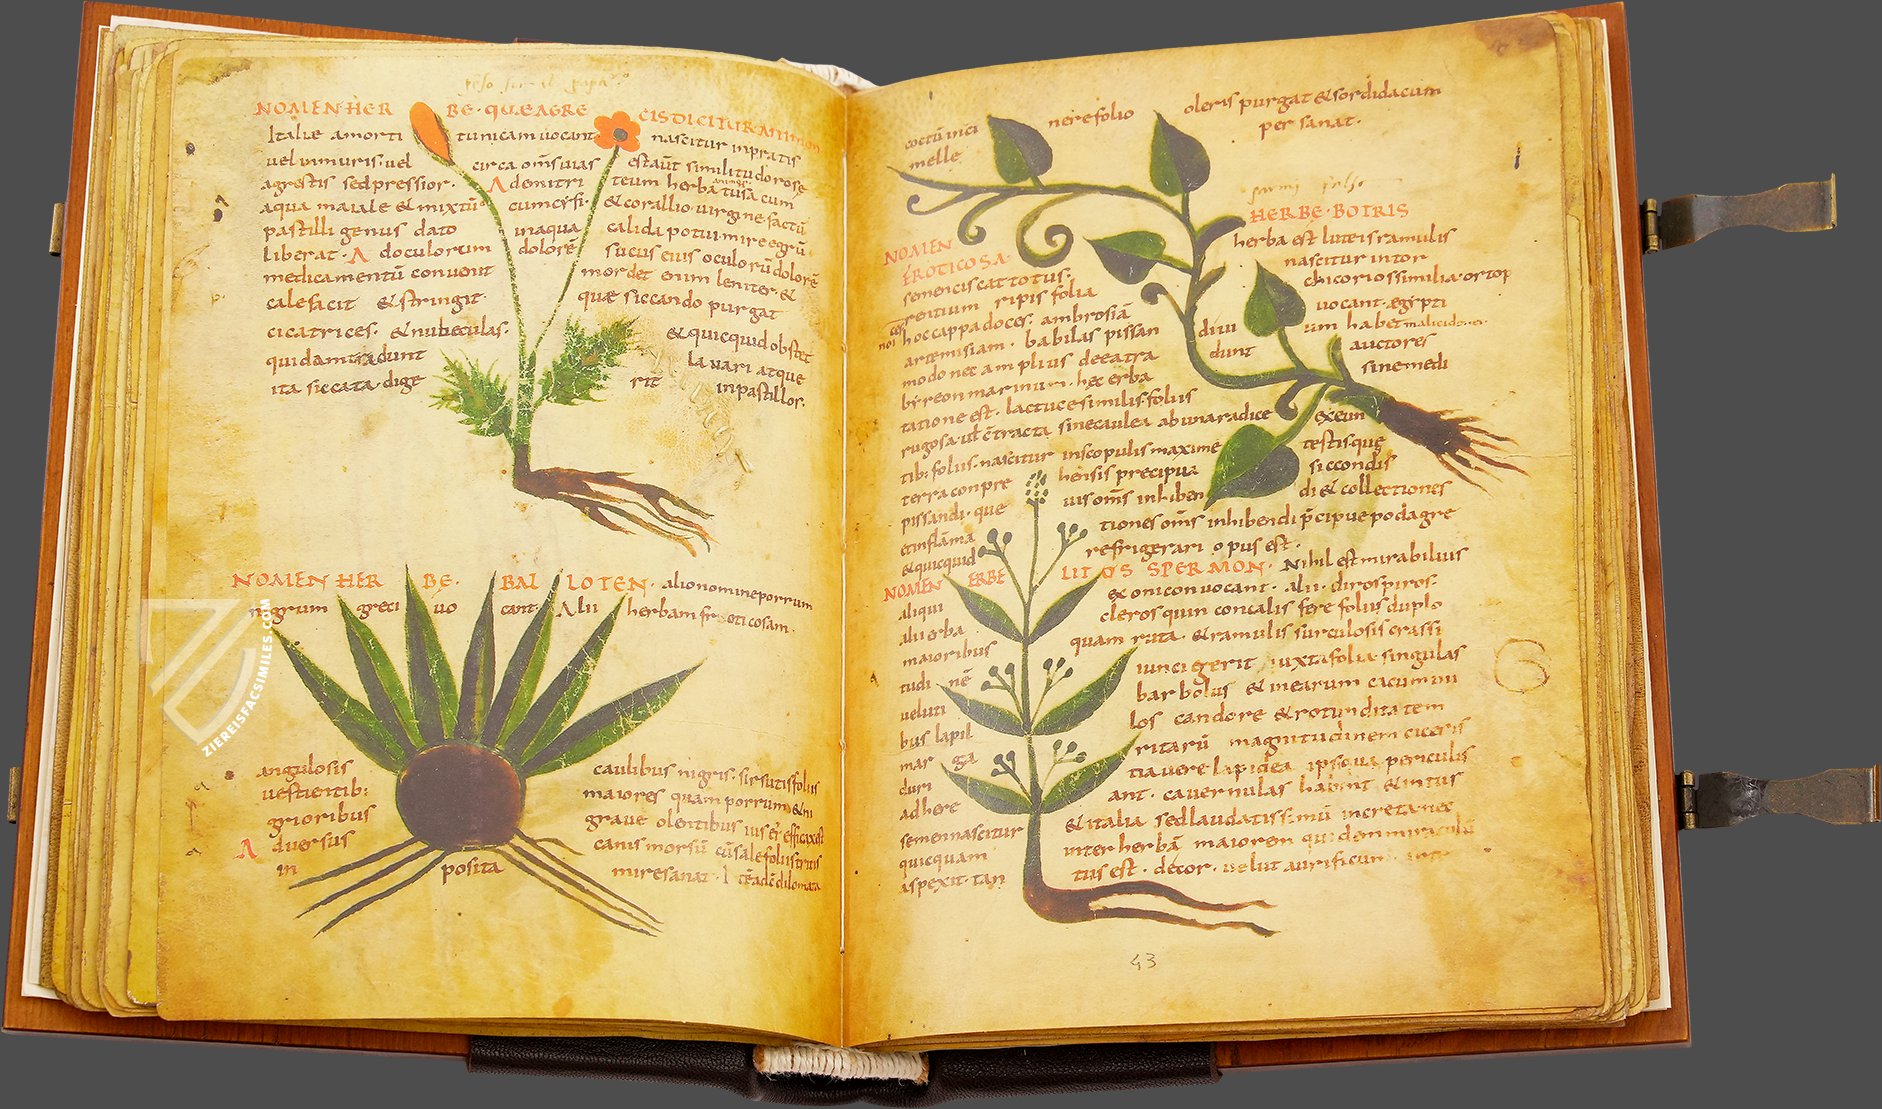 NOMEN HER BE · QUE AGRE CIS DICITUR ANIMON
Italie amorti tunicam uocant nascitur in pratis
uel in muris uel circa om̄s uias estaūt similitudo rose
agrestis sed pressior · Ademitri teum herbā tusā cum
aqua maiale & mixtū cum cỳsi · & corallio uirgine factū
pastilli genus dato in aqua calida potui mire egrū
liberat · A doculorum dolorē sucus eius oculorū dolorē
medicamentū conuenit mordet enim leniter &
calefacit & stringit · quæ siccando purgat
cicatrices · & nubeculas · & quicquid obstet
quidam tradunt lauari atque
ita siccata · dige rit in pastillor ·
NOMEN HER BE · BAL LOTEN · alio nomine porrum
nigrum greci uo cant · Alii herbam fruticosam ·
angulosis caulibus nigris · sirsutis foliis
uestientib: maiores quam porrum & ni
grioribus graue olentibus uis ei efficax est
Aduersus canis morsū cū sale foliis tritis
in posita mire sanat · I
coctū inici nere folio oleris purgat & sordida cum
melle per sanat ·
HERBE · BOTRIS
NOMEN herba est luteis ramulis
FROTICOSA · nascitur in tor
semen circat totus · chicorio similia · os top
rentium ripis folia uocant · egỳpti
hoc cappadoces · ambrosiā diui um habet
artemisiam · babilas pissan dunt auctores
modo nec amplius deeatra sine medi
bỳreon marinum · hec erba
tatione est · lactuce similis · foliis
rugosa uł c̄tracta sine caulea ab una radice exeun
tib: foliis · nascitur in scopulis maxime testisque
terra conpre hensis precipua siccondis
pissandi · que uis om̄s inhiben di & collectiones
etinflāma tiones om̄s inhibendi p̄cipue podagre
& quicquid refrigerari opus est ·
NOMEN ERBE LITOS SPERMON · Nihil est mirabilius
aliqui exoniconuocant · alii · dirospiros
alii erba cleros quin concalis fere foliis duplo
maioribus quam ruta · & ramulis surculosis crassi
tudi nē iunci gerit iuxta folia singulas
ueluti barbolas & in earum cacumini
bus lapil los candore & rotunditatem
mar ga ritarū magnitudinem ciceris
duri tia uere lapidea ipsa ua periculis
adhere ant · cauernulas habent & intus
semen nascitur & italia sed laudatissimū in cretaneo
quicquam inter herbā maiorem quidem miraculū
aspexit · tan tus est · decor · uelut aurificum
43
ZIEREISFACSIMILES.COM